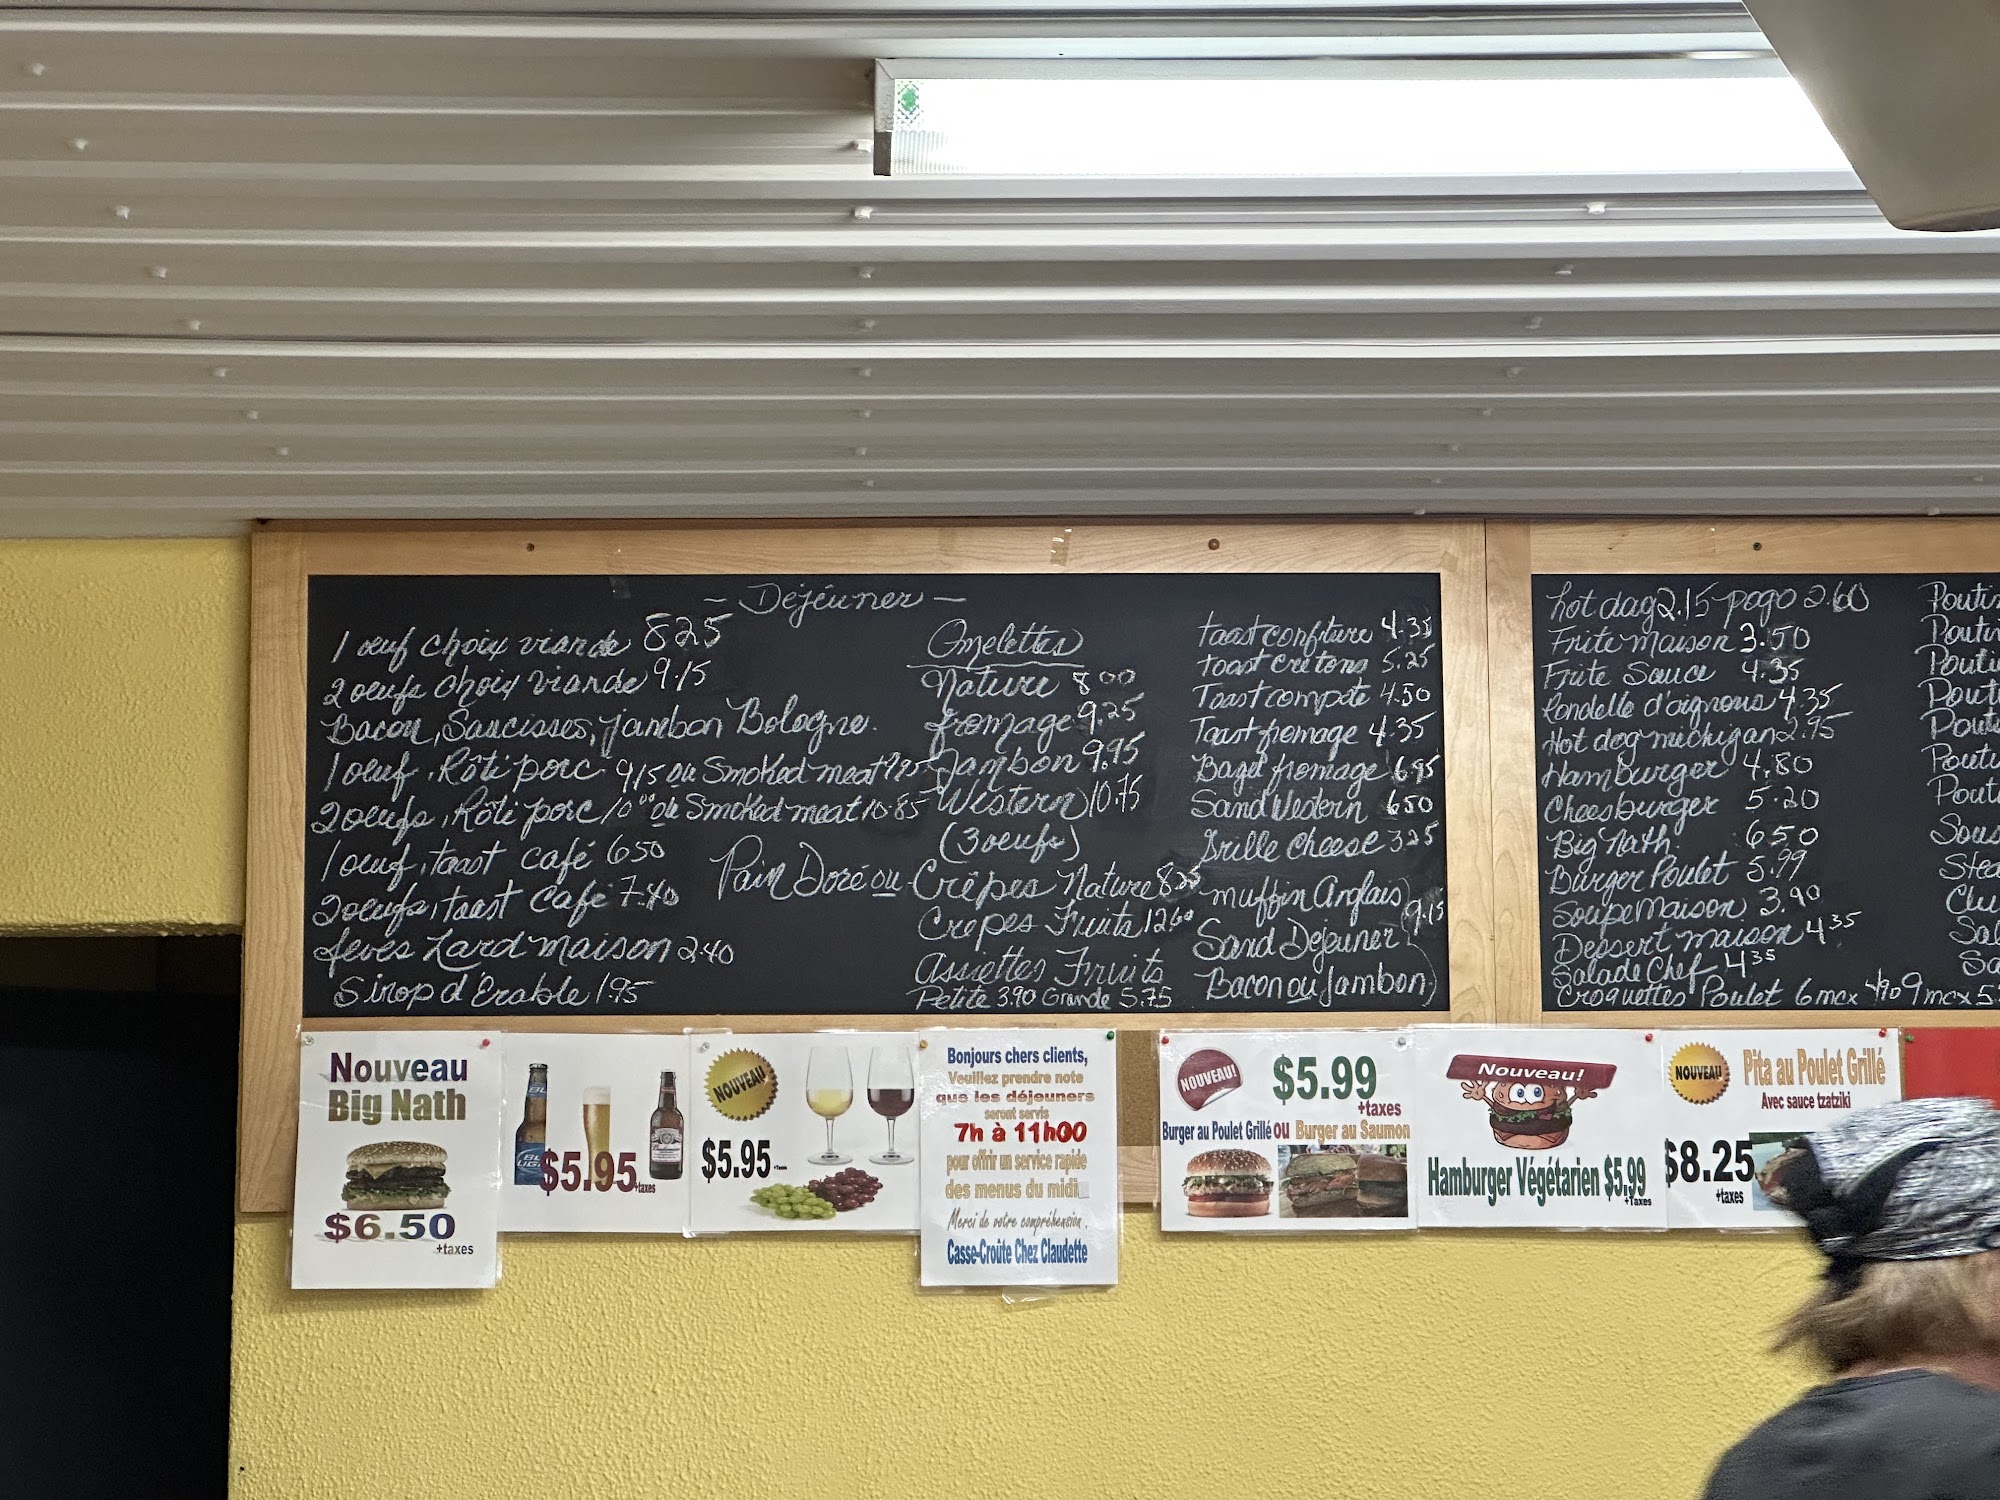 - Déjéuner -
1 oeuf choix viande 8.25
2 oeufs choix viande 9.15
Bacon, Saucisses, jambon Bologne.
1 oeuf, Rôti porc 9.15 ou Smoked meat
2 oeufs, Rôti porc 10.00 ou Smoked meat 10.85
1 oeuf, toast café 6.50
2 oeufs, toast café 7.40
feves Lard maison 2.40
Sirop d'Erable 1.95
Omelettes
Nature 8.00
fromage 9.25
Jambon 9.95
Western 10.75
(3 oeufs)
Pain Doré ou Crêpes Nature 8.25
Crêpes Fruits 12.60
Assiettes Fruits
Petite 3.90 Grande 5.75
toast confiture 4.35
toast cretons 5.25
Toast compote 4.50
Toast fromage 4.35
Bagel fromage 6.95
Sand Western 6.50
Grille cheese 3.25
muffin Anglais
Sand Dejeuner 9.15
Bacon ou Jambon
hot dog 2.15 pogo 2.60
Frite maison 3.50
Frite Sauce 4.35
Rondelle d'oignons 4.35
Hot dog michigan 2.95
Hamburger 4.80
Cheesburger 5.20
Big Nath 6.50
Burger Poulet 5.99
Soupe maison 3.90
Dessert maison 4.35
Salade Chef 4.35
Croquettes Poulet 6 mcx 4.90 9 mcx
Nouveau
Big Nath
$6.50
+taxes
$5.95
+taxes
NOUVEAU
$5.95
Bonjours chers clients,
Veuillez prendre note
que les déjeuners
seront servis
7h à 11h00
pour offrir un service rapide
des menus du midi
Merci de votre compréhension.
Casse-Croûte Chez Claudette
NOUVEAU!
$5.99
+taxes
Burger au Poulet Grillé ou Burger au Saumon
Nouveau!
Hamburger Végétarien $5.99
+Taxes
NOUVEAU
Pita au Poulet Grillé
Avec sauce tzatziki
$8.25
+taxes